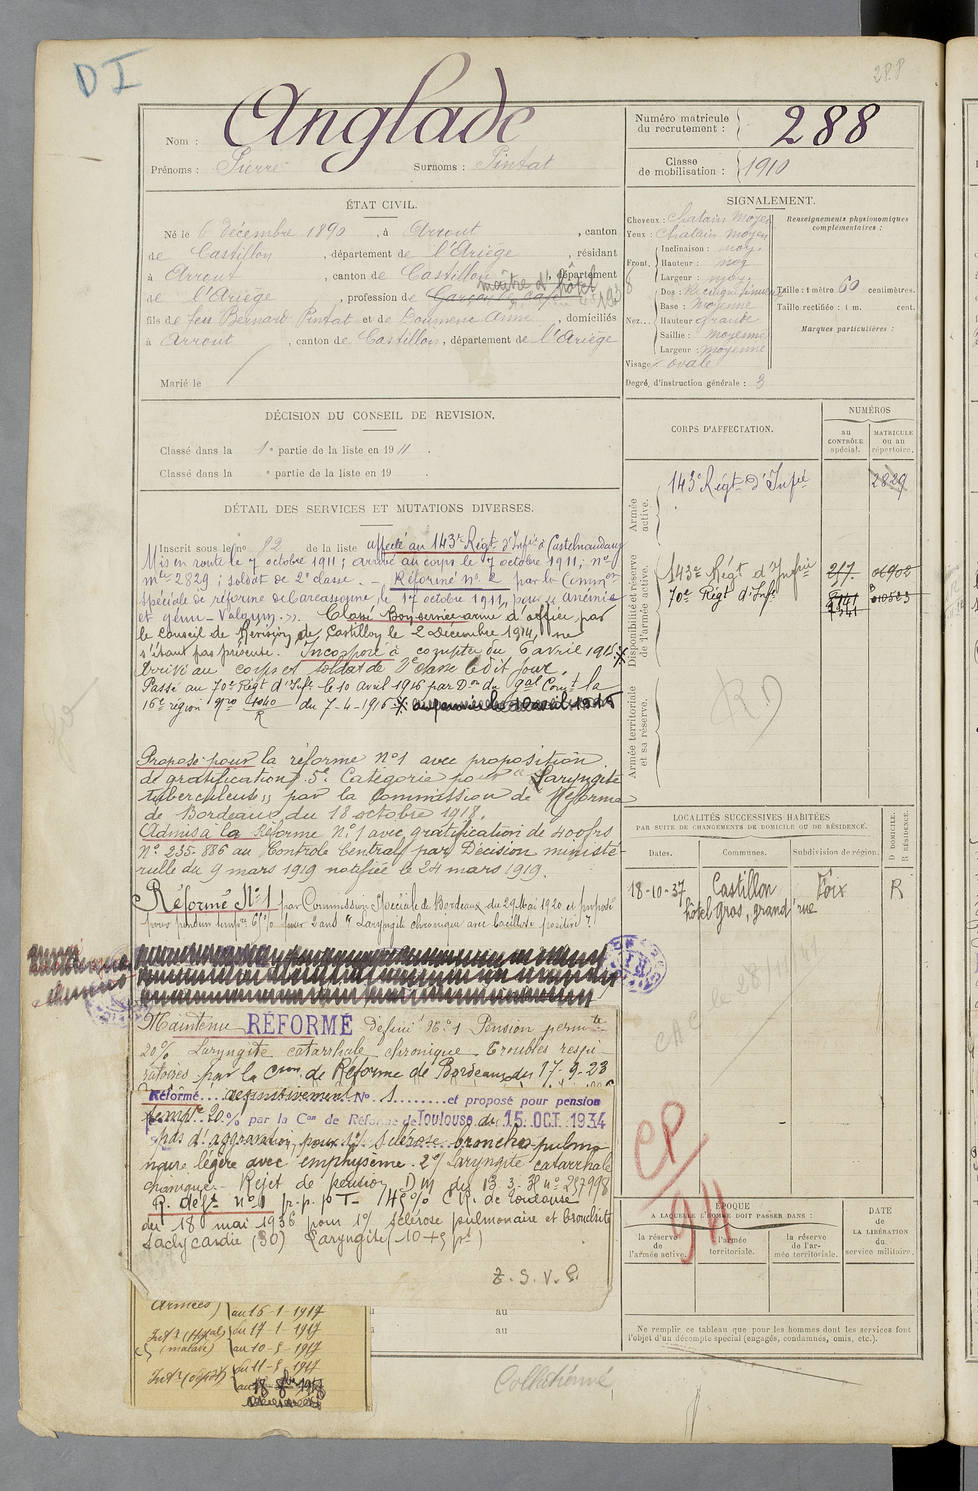 D I
288
Nom : Anglade
Prénoms : Pierre Surnoms : Pintat
Numéro matricule du recrutement : 288
Classe de mobilisation : 1910
ÉTAT CIVIL.
Né le 6 décembre 1890, à Arrout, canton
de Castillon, département de l'Ariège, résidant
à Arrout, canton de Castillon, département
maître d'hôtel
de l'Ariège, profession de Garçon de café
fils de feu Bernard Pintat et de Doumenc Anne, domiciliés
à Arrout, canton de Castillon, département de l'Ariège
Marié le
SIGNALEMENT.
Cheveux : chatain moyen
Yeux : chatain moyen
Front. Inclinaison : moy
Hauteur : moy
Largeur : moy
Nez... Dos : Rectiligne sinueux
Base : moyenne
Hauteur grande
Saillie : moyenne
Largeur : moyenne
Visage : ovale
Degré d'instruction générale : 3
Renseignements physionomiques complémentaires :
Taille : 1 mètre 60 centimètres.
Taille rectifiée : 1 m. cent.
Marques particulières :
DÉCISION DU CONSEIL DE REVISION.
Classé dans la 1e partie de la liste en 1911.
Classé dans la e partie de la liste en 19 .
DÉTAIL DES SERVICES ET MUTATIONS DIVERSES.
Inscrit sous le no 82 de la liste affecté au 143e Régt d'Infie à Castelnaudary
Mis en route le 7 octobre 1911 ; arrivé au corps le 7 octobre 1911 ; no
mle 2829 ; soldat de 2e classe. — Réformé no 2 par la Common
spéciale de réforme de Carcassonne, le 17 octobre 1911, pour « anémie
et genu-Valgum. ». Classé Bon service armé d'office par
le Conseil de Revision de Castillon le 2 Décembre 1914, ne
s'étant pas présenté. Incorporé à compter du 6 avril 1915
Arrivé au corps et soldat de 2e classe le dit jour.
Passé au 70e Régt d'Infie le 10 avril 1916 par Don du Gal Comt la
16e région du 7-4-1916
Proposé pour la réforme no 1 avec proposition
de gratification 5e Catégorie pour "Laryngite
tuberculeuse" par la Commission de Réforme
de Bordeaux du 18 octobre 1918.
Admis à la Réforme No 1 avec gratification de 400frs
No 235-886 au Contrôle Central par Décision ministé-
rielle du 9 mars 1919 notifiée le 24 mars 1919.
Réformé No 1 par Commission Spéciale de Bordeaux du 29 Mai 1920 et proposé
Maintenu RÉFORMÉ défini No 1 Pension permte
20% Laryngite catarrhale chronique. Troubles respi-
ratoires par la Con de Réforme de Bordeaux du 17-9-23
Réformé.... définitivement No 1........et proposé pour pension
20% par la Con de Réforme de Toulouse du 15 OCT. 1934
pas d'aggravation, pour 1o/ sclérose broncho-pulmo-
naire légère avec emphysème. 2o/ Laryngite catarrhale
chronique. - Rejet de pension DM du 13.3.
R. déft no 1 p.p. T- 45% CR. de Toulouse
du 18 mai 1936 pour 1o/ sclérose pulmonaire et bronchite
tachycardie (30) Laryngite (10+5 pt)
T. S. V. P.
Armées) au 16-1-1917
Intr (Hpal) du 17-1-1917
(malade) au 10-5-1917
Intr (dépôt) du 11-5-1917
CORPS D'AFFECTATION.
NUMÉROS
au CONTRÔLE spécial.
MATRICULE ou au répertoire.
Armée active.
143e Régt d'Infie 2829
Disponibilité et réserve de l'armée active.
143e Régt d'Infie
70e Régt d'Infie
Armée territoriale et sa réserve.
RD
LOCALITÉS SUCCESSIVES HABITÉES
PAR SUITE DE CHANGEMENTS DE DOMICILE OU DE RÉSIDENCE.
D DOMICILE. R RÉSIDENCE.
Dates. Communes. Subdivision de région.
18-10-37 Castillon Foix R
hôtel Gros, grand'rue
CP
94
ÉPOQUE
À LAQUELLE L'HOMME DOIT PASSER DANS :
la réserve de l'armée active.
l'armée territoriale.
la réserve de l'armée territoriale.
DATE DE LA LIBÉRATION du service militaire.
au
au
Ne remplir ce tableau que pour les hommes dont les services font
l'objet d'un décompte spécial (engagés, condamnés, omis, etc.).
Collationné